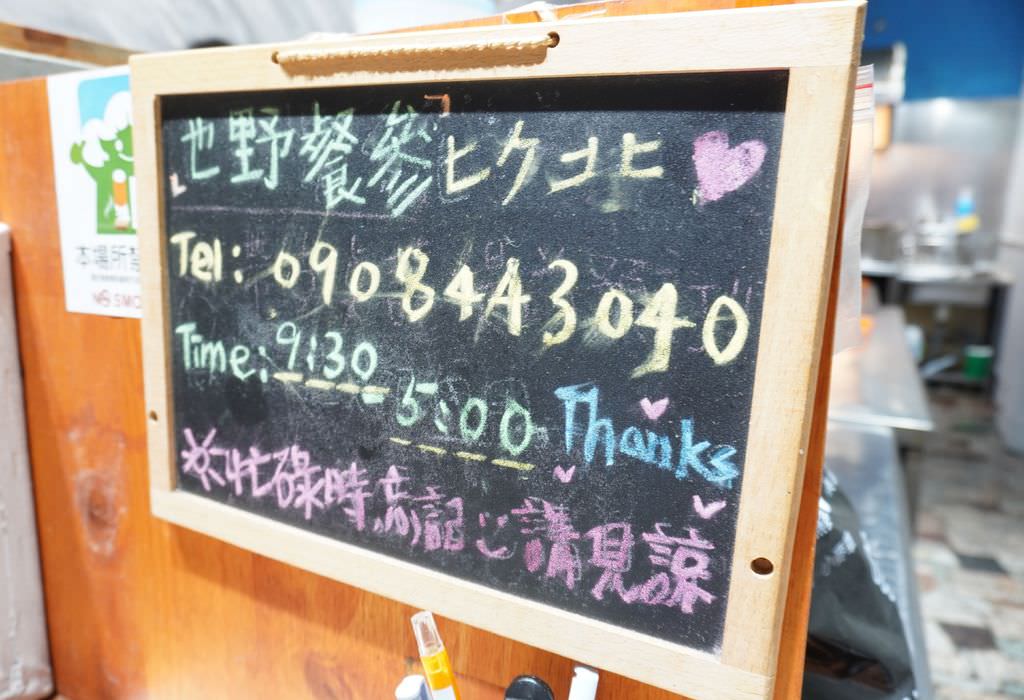 也野餐參ヒクコヒ
Tel: 0908443040
Time: 9:30
5:00
Thanks
※忙碌時忘記 請見諒
本場所禁